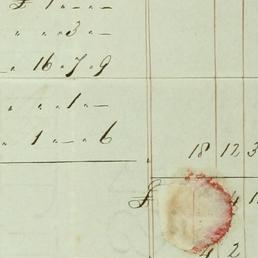 £ 1 „ — „ —
„ „ „ 3 „ —
„ 16 „ 7 „ 9
„ „ „ 1 „ —
„ 1 „ — „ 6
18 12 3
£ 4 1
4 2